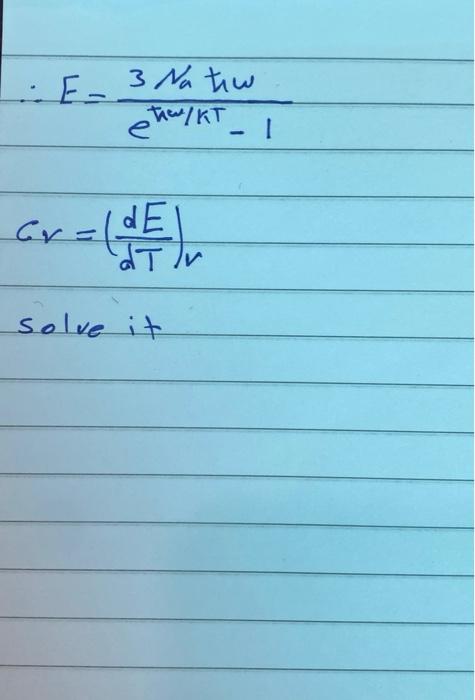 ∴ E = 3 Na ħω / e^ħω/KT - 1
Cv = (dE/dT)v
solve it